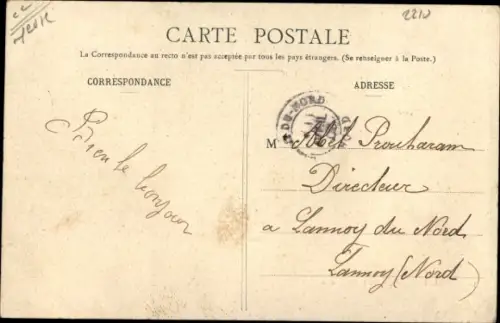 2210
CARTE POSTALE
La Correspondance au recto n'est pas acceptée par tous les pays étrangers. (Se renseigner à la Poste.)
CORRESPONDANCE
ADRESSE
Bien le bonjour
DU-NORD
M Abel Prouharam
Directeur
a Lannoy du Nord
Lannoy (Nord)